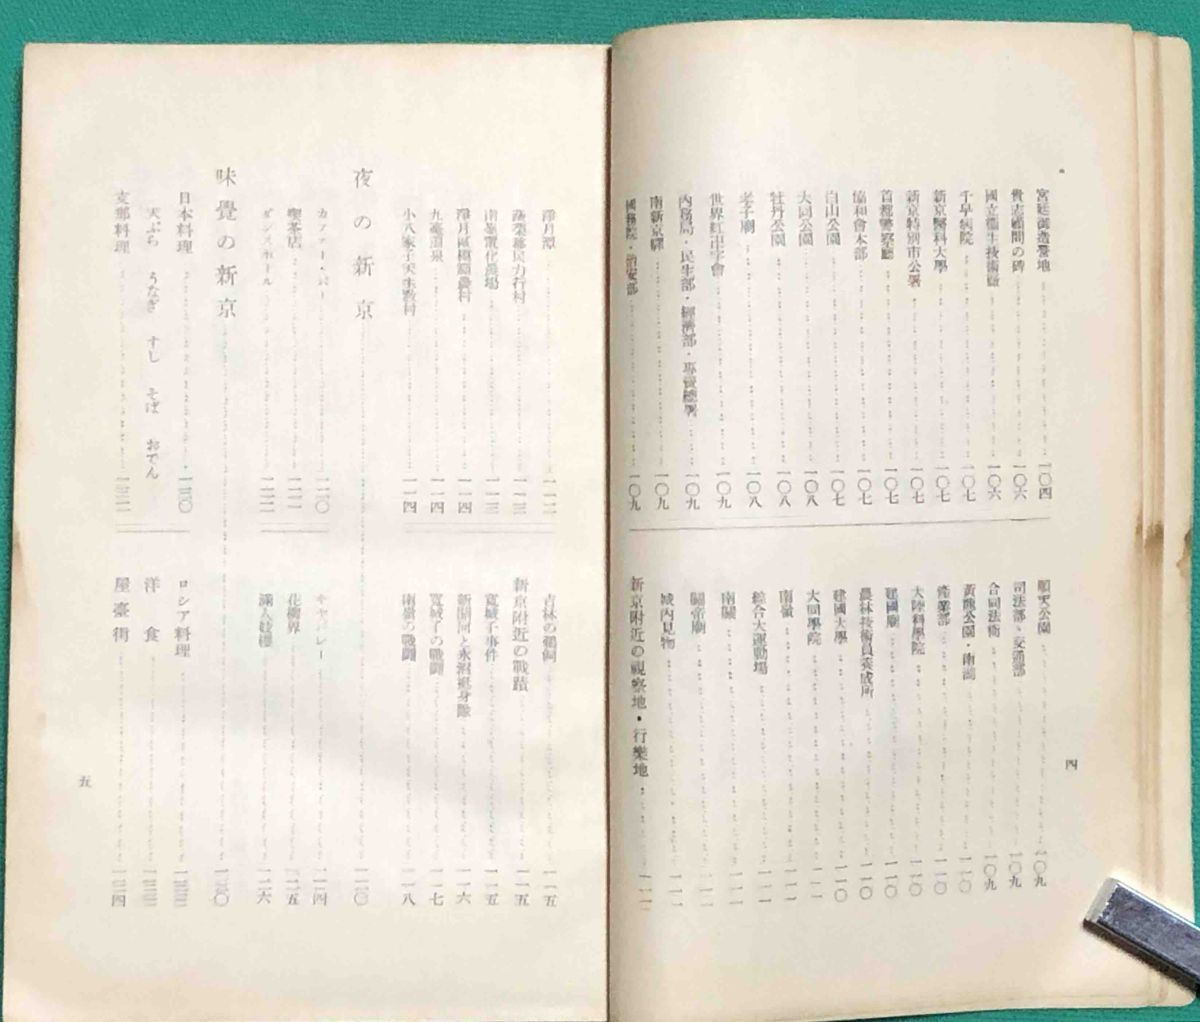 宮廷御造營地 一〇四
貴志顧問の碑 一〇六
國立衞生技術廠 一〇六
千早病院 一〇七
新京醫科大學 一〇七
新京特別市公署 一〇七
首都警察廳 一〇七
協和會本部 一〇七
白山公園 一〇七
大同公園 一〇八
牡丹公園 一〇八
老子廟 一〇八
世界紅卍字會 一〇九
內務局・民生部・經濟部・專賣總署 一〇九
南新京驛 一〇九
國務院・治安部 一〇九
順天公園 一〇九
司法部・交通部 一〇九
合同法衙 一〇九
黃龍公園・南湖 一一〇
產業部 一一〇
大陸科學院 一一〇
建國廟 一一〇
農林技術員養成所 一一〇
建國大學 一一〇
大同學院 一一一
南嶺 一一一
綜合大運動場 一一一
南關 一一一
關帝廟 一一一
城內見物 一一一
新京附近の視察地・行樂地
四
淨月潭
南嶺電化農場 一一三
淨月區模範農村 一一四
九臺溫泉 一一四
小八家子天主敎村 一一四
吉林の鵜飼 一一五
新京附近の戰蹟 一一五
寬城子事件 一一五
新開河と永沼挺身隊 一一六
寬城子の戰鬪 一一七
南嶺の戰鬪 一一八
夜の新京 一二〇
カフヱー・バー 一二〇
喫茶店
ダンスホール
キャバレー 一二四
花柳界 一二五
滿人妓樓 一二六
味覺の新京 一三〇
日本料理 一三〇
天ぷら うなぎ すし そば おでん
支那料理
ロシア料理 一三三
洋食 一三三
屋臺街 一三四
五